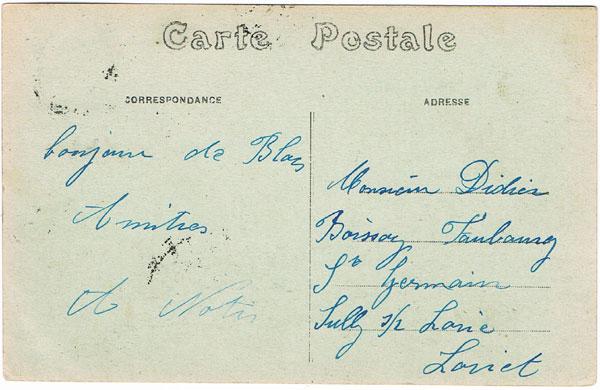 Carte Postale
CORRESPONDANCE
ADRESSE
bonjour de Blois
Amitiés
Monsieur Didier
Boissay Faubourg
St Germain
Sully s/l Loire
Loiret